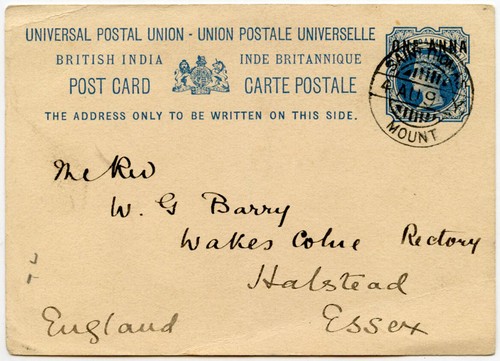 UNIVERSAL POSTAL UNION - UNION POSTALE UNIVERSELLE
BRITISH INDIA INDE BRITANNIQUE
POST CARD CARTE POSTALE
THE ADDRESS ONLY TO BE WRITTEN ON THIS SIDE.
ONE ANNA
SAINT THOMAS
AU 9
MOUNT
The Rev
W. G Barry
Wakes Colne Rectory
Halstead
England Essex